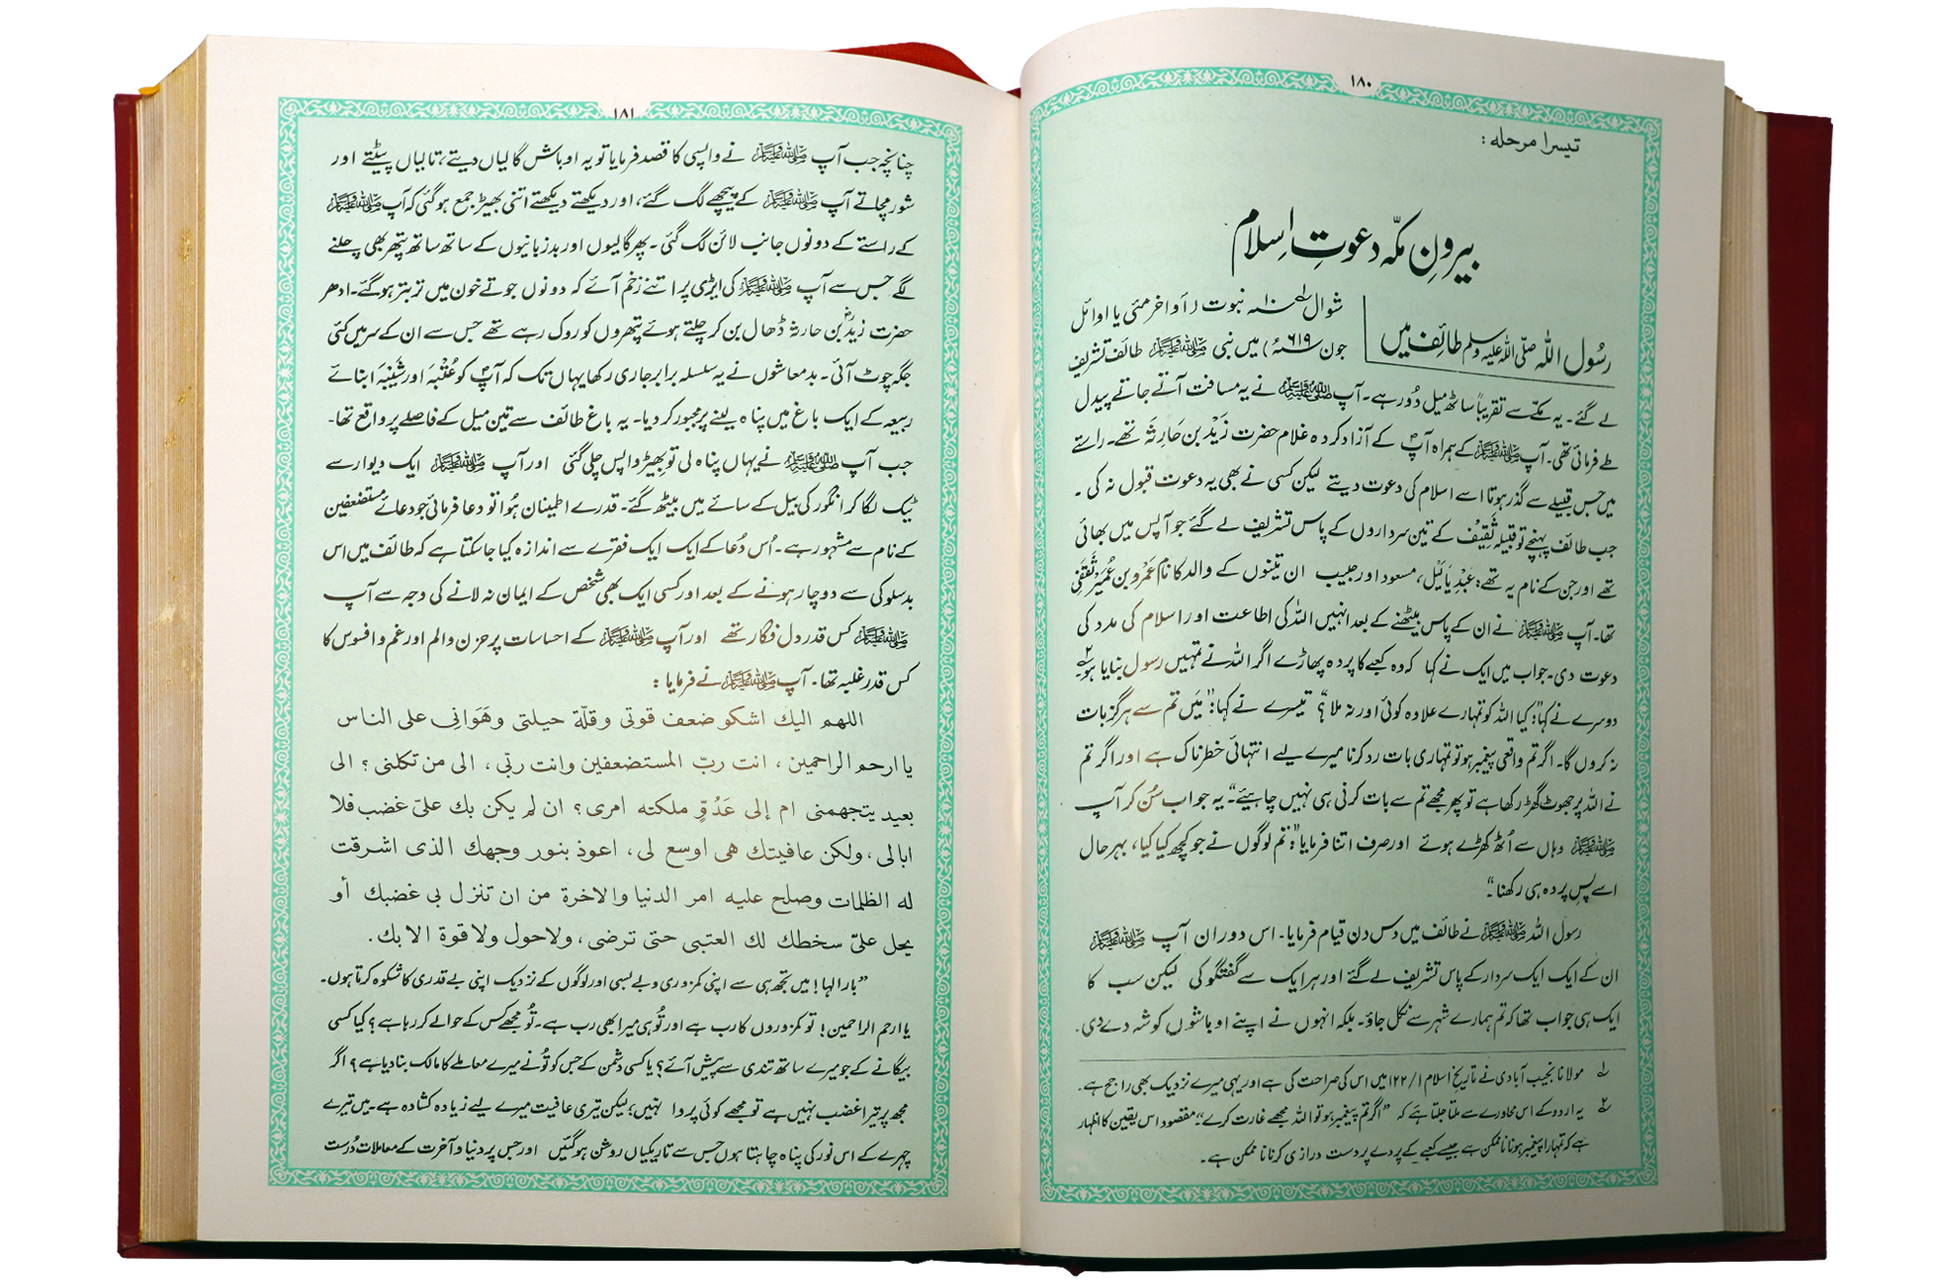 ۱۸۰
تیسرا مرحلہ :
بیرونِ مکّہ دعوتِ اِسلام
رسُول اللہ صلی اللہ علیہ وسلم طائف میں
شوال ۱۰ نبوت (اواخر مئی یا اوائل
جون ۶۱۹ء) میں نبی ﷺ طائف تشریف
لے گئے۔ یہ مکّے سے تقریباً ساٹھ میل دُور ہے۔ آپ ﷺ نے یہ مسافت آتے جاتے پیدل
طے فرمائی تھی۔ آپ ﷺ کے ہمراہ آپؐ کے آزاد کردہ غلام حضرت زَیْد بن حَارِثہ تھے۔ راستے
میں جس قبیلے سے گذر ہوتا اسے اسلام کی دعوت دیتے لیکن کسی نے بھی یہ دعوت قبول نہ کی ۔
جب طائف پہنچے تو قبیلہ ثَقِیْف کے تین سرداروں کے پاس تشریف لے گئے جو آپس میں بھائی
تھے اور جن کے نام یہ تھے: عَبْدِ یَالَیْل، مسعود اور حبیب ان تینوں کے والد کا نام عَمْرو بن عُمَیْر ثَقَفِیْ
تھا۔ آپ ﷺ نے ان کے پاس بیٹھنے کے بعد انہیں اللہ کی اطاعت اور اسلام کی مدد کی
دعوت دی۔ جواب میں ایک نے کہا کہ وہ کعبے کا پردہ پھاڑے اگر اللہ نے تمہیں رسول بنایا ہو۔۲
دوسرے نے کہا: "کیا اللہ کو تمہارے علاوہ کوئی اور نہ ملا؟" تیسرے نے کہا: "میں تم سے ہرگز بات
نہ کروں گا۔ اگر تم واقعی پیغمبر ہو تو تمہاری بات رد کرنا میرے لیے انتہائی خطرناک ہے اور اگر تم
نے اللہ پر جھوٹ گھڑ رکھا ہے تو پھر مجھے تم سے بات کرنی ہی نہیں چاہیئے"۔ یہ جواب سُن کر آپ
ﷺ وہاں سے اُٹھ کھڑے ہوئے اور صرف اتنا فرمایا: "تم لوگوں نے جو کچھ کیا کیا، بہرحال
اسے پسِ پردہ ہی رکھنا۔"
رسول اللہ ﷺ نے طائف میں دس دن قیام فرمایا۔ اس دوران آپ ﷺ
ان کے ایک ایک سردار کے پاس تشریف لے گئے اور ہر ایک سے گفتگو کی لیکن سب کا
ایک ہی جواب تھا کہ تم ہمارے شہر سے نکل جاؤ۔ بلکہ انہوں نے اپنے اوباشوں کو شہ دے دی۔
۱ مولانا نجیب آبادی نے تاریخ اسلام ۱/۱۲۲ میں اس کی صراحت کی ہے اور یہی میرے نزدیک بھی راجح ہے۔
۲ یہ اردو کے اس محاورے سے ملتا جلتا ہے کہ "اگر تم پیغمبر ہو تو اللہ مجھے غارت کرے"، مقصود اس یقین کا اظہار
ہے کہ تمہارا پیغمبر ہونا ناممکن ہے جیسے کعبے کے پردے پر دست درازی کرنا ناممکن ہے۔
۱۸۱
چنانچہ جب آپ ﷺ نے واپسی کا قصد فرمایا تو یہ اوباش گالیاں دیتے، تالیاں پیٹتے اور
شور مچاتے آپ ﷺ کے پیچھے لگ گئے، اور دیکھتے دیکھتے اتنی بھیڑ جمع ہو گئی کہ آپ ﷺ
کے راستے کے دونوں جانب لائن لگ گئی۔ پھر گالیوں اور بدزبانیوں کے ساتھ ساتھ پتھر بھی چلنے
لگے جس سے آپ ﷺ کی ایڑی پر اتنے زخم آئے کہ دونوں جوتے خون میں تر بتر ہو گئے۔ ادھر
حضرت زیدؓ بن حارثہ ڈھال بن کر چلتے ہوئے پتھروں کو روک رہے تھے جس سے ان کے سر میں کئی
جگہ چوٹ آئی۔ بدمعاشوں نے یہ سلسلہ برابر جاری رکھا یہاں تک کہ آپؐ کو عُتْبَہ اور شَیْبَہ ابنائے
ربیعہ کے ایک باغ میں پناہ لینے پر مجبور کر دیا۔ یہ باغ طائف سے تین میل کے فاصلے پر واقع تھا۔
جب آپ ﷺ نے یہاں پناہ لی تو بھیڑ واپس چلی گئی اور آپ ﷺ ایک دیوار سے
ٹیک لگا کر انگور کی بیل کے سائے میں بیٹھ گئے۔ قدرے اطمینان ہُوا تو دعا فرمائی جو دعائے مستضعفین
کے نام سے مشہور ہے۔ اُس دُعا کے ایک ایک فقرے سے اندازہ کیا جا سکتا ہے کہ طائف میں اس
بدسلوکی سے دوچار ہونے کے بعد اور کسی ایک بھی شخص کے ایمان نہ لانے کی وجہ سے آپ
ﷺ کس قدر دل فگار تھے اور آپ ﷺ کے احساسات پر حزن والم اور غم و افسوس کا
کس قدر غلبہ تھا۔ آپ ﷺ نے فرمایا :
اللهم اليك اشكو ضعف قوتى وقلّة حيلتى وهَوَانى على الناس
يا ارحم الراحمين ، انت ربّ المستضعفين وانت ربّى ، الى من تكلنى ؟ الى
بعيد يتجهمنى ام إلى عَدُوٍّ ملكته امرى ؟ ان لم يكن بك علىّ غضب فلا
ابالى ، ولكن عافيتك هى اوسع لى ، اعوذ بنور وجهك الذى اشرقت
له الظلمات وصلح عليه امر الدنيا والاخرة من ان تنزل بى غضبك أو
يحل علىّ سخطك لك العتبى حتى ترضى ، ولاحول ولا قوة الا بك.
"بارالہا! میں تجھ ہی سے اپنی کمزوری و بے بسی اور لوگوں کے نزدیک اپنی بے قدری کا شکوہ کرتا ہوں۔
یا ارحم الراحمین! تو کمزوروں کا رب ہے اور تُو ہی میرا بھی رب ہے۔ تُو مجھے کس کے حوالے کر رہا ہے؟ کیا کسی
بیگانے کے جو میرے ساتھ تندی سے پیش آئے؟ یا کسی دشمن کے جس کو تُو نے میرے معاملے کا مالک بنا دیا ہے؟ اگر
مجھ پر تیرا غضب نہیں ہے تو مجھے کوئی پروا نہیں؛ لیکن تیری عافیت میرے لیے زیادہ کشادہ ہے۔ میں تیرے
چہرے کے اس نور کی پناہ چاہتا ہوں جس سے تاریکیاں روشن ہو گئیں اور جس پر دنیا و آخرت کے معاملات دُرست